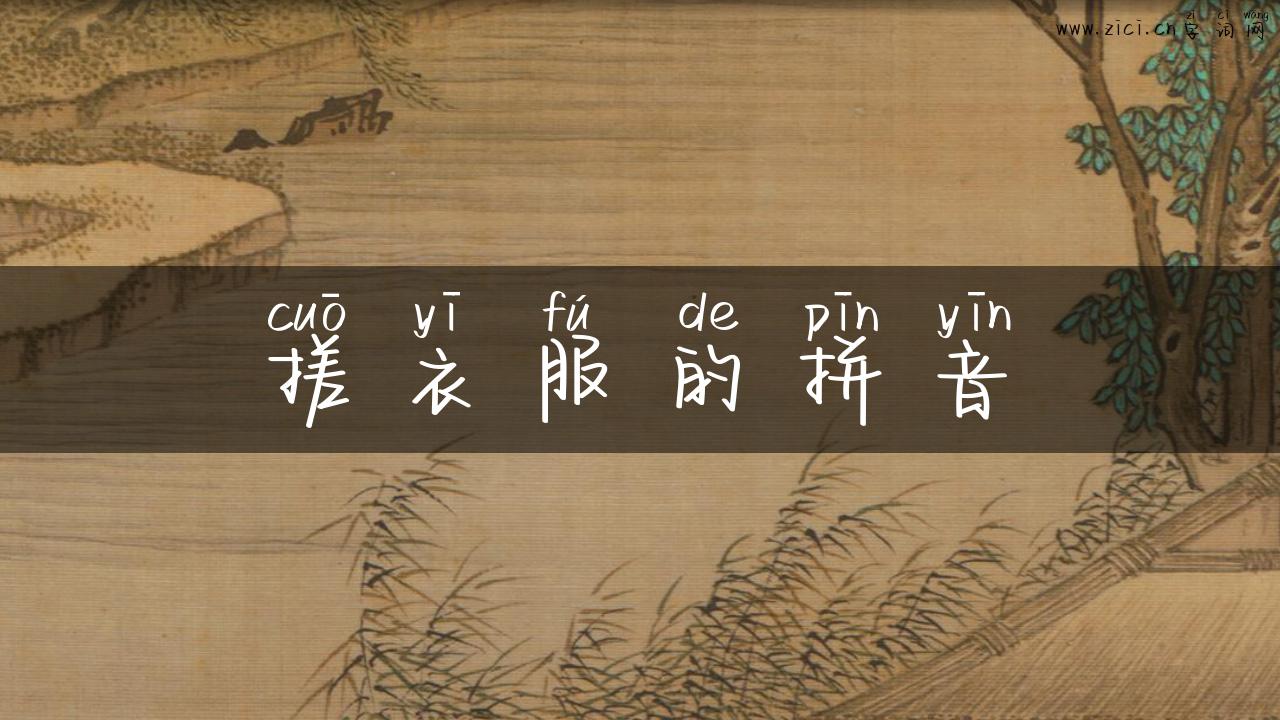 zì cí wǎng
www.zici.cn字词网
cuō yī fú de pīn yīn
搓衣服的拼音